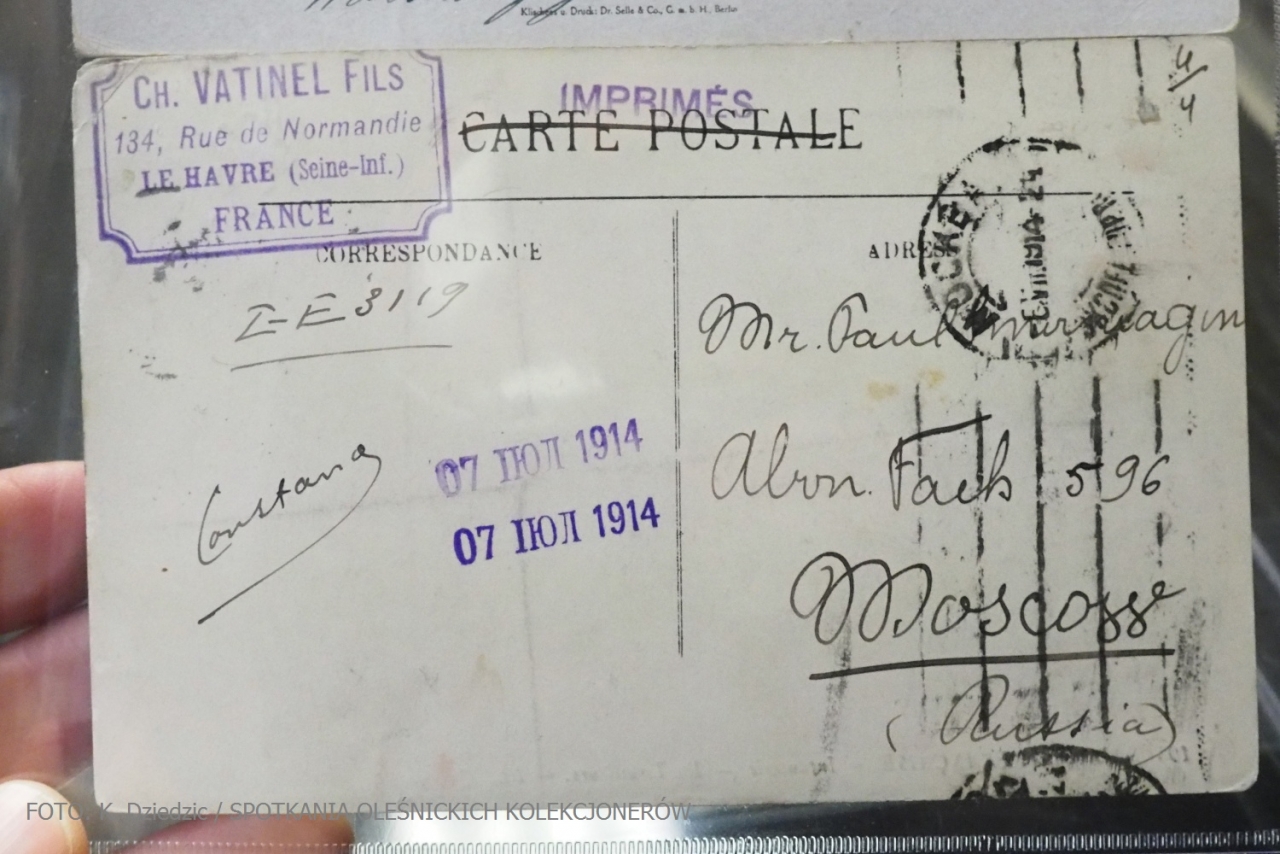 Klischees u. Druck: Dr. Selle & Co., G. m. b. H., Berlin
CH. VATINEL FILS
134, Rue de Normandie
LE HAVRE (Seine-Inf.)
FRANCE
IMPRIMÉS
CARTE POSTALE
4/4
CORRESPONDANCE
ADRES
I-E 3119
МОСКВА
1914
Mr. Paul
07 ІЮЛ 1914
07 ІЮЛ 1914
Abon. Fach 596
Moscou
(Russia)
FOTO: K. Dziedzic / SPOTKANIA OLEŚNICKICH KOLEKCJONERÓW